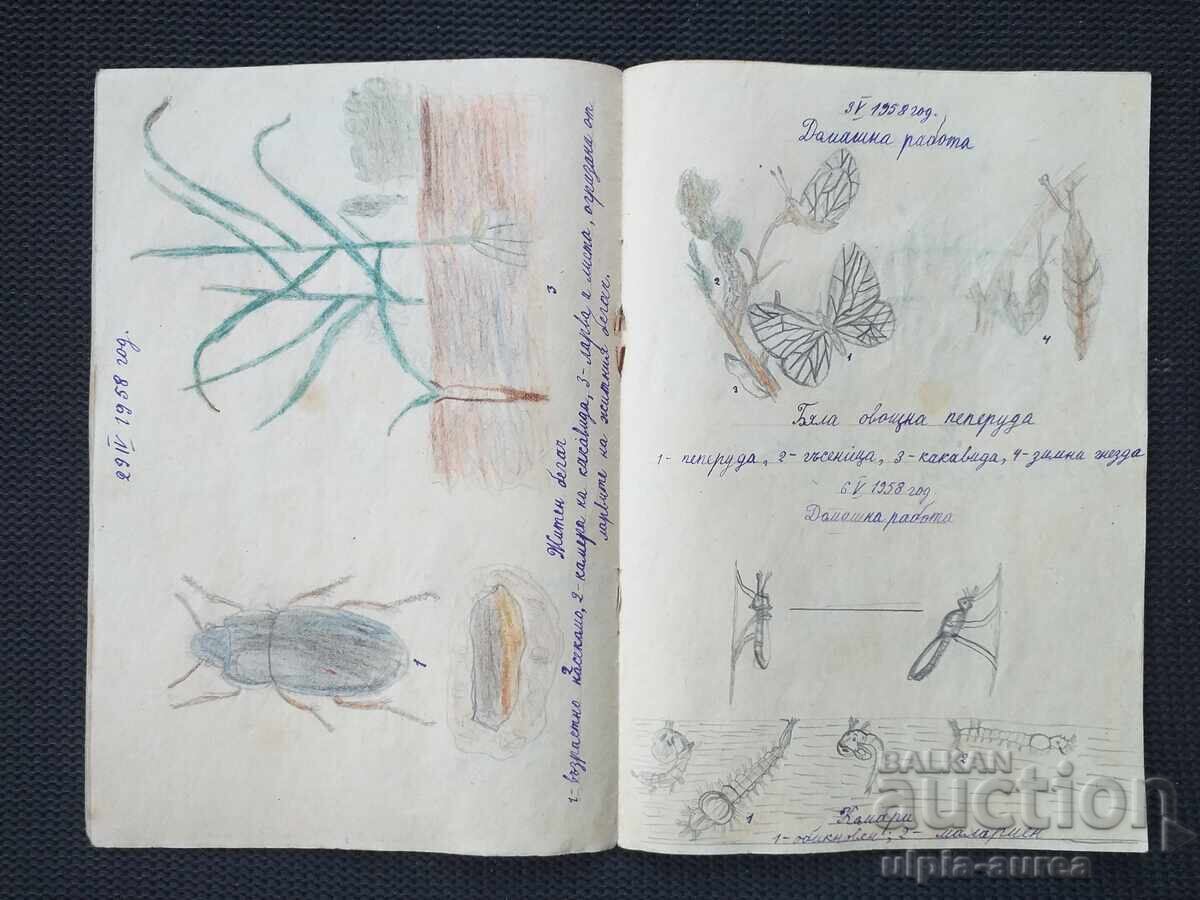 29 IV 1958 год.
1
2
3
Житен бегач
1- възрастно насекомо, 2- камера на какавида, 3- ларва и листа, огризани от
ларвите на житния бегач.
3 V 1958 год.
Домашна работа
2
1
3
4
Бяла овощна пеперуда
1- пеперуда, 2- гъсеница, 3- какавида, 4- зимни гнезда
6 V 1958 год
Домашна работа
1
2
Комари
1- обикновен; 2- малариен
BALKAN
auction
ulpia-aurea